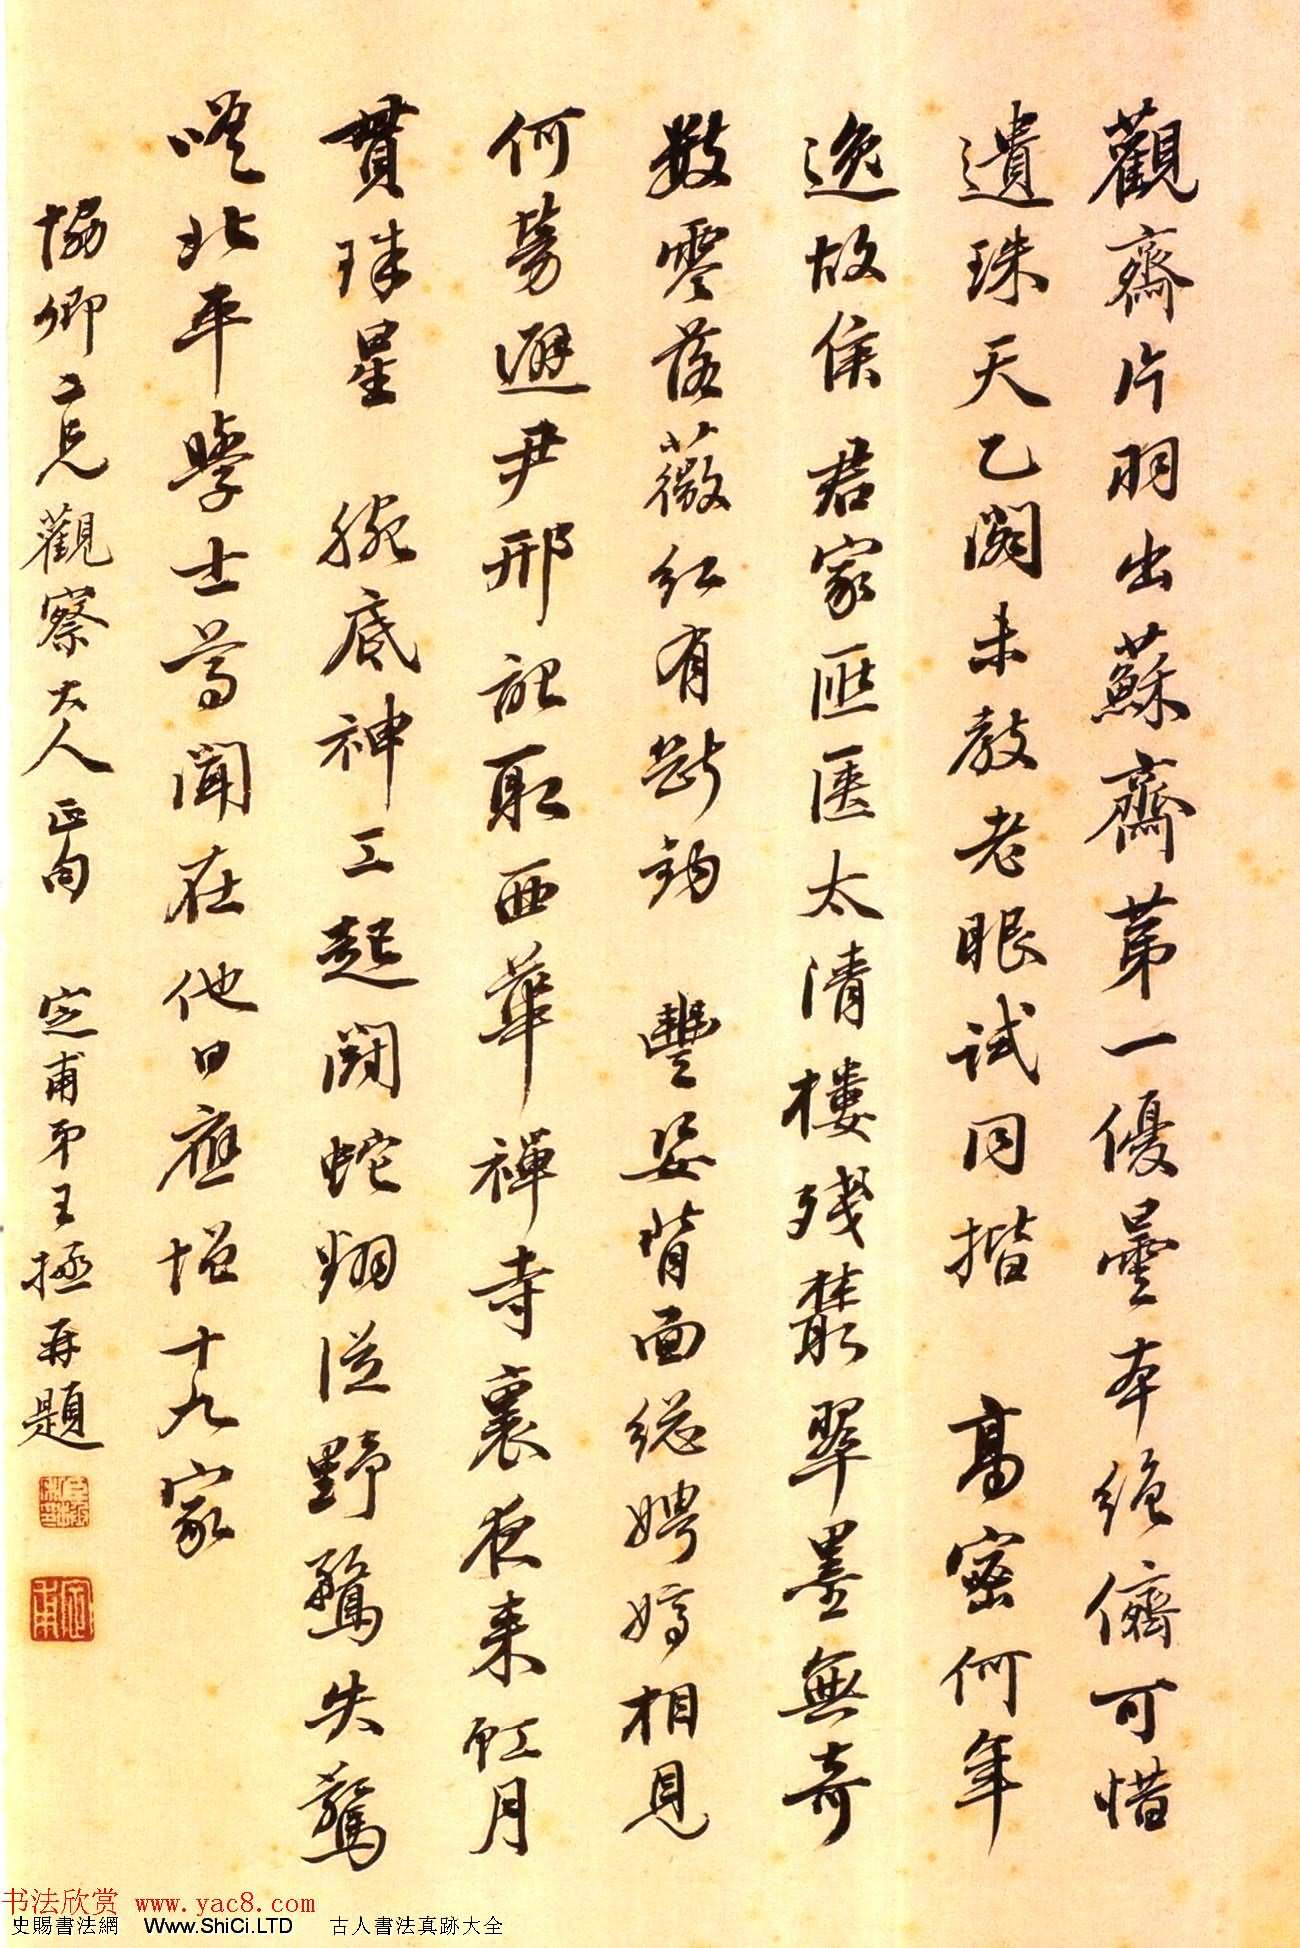 觀齋片羽出蘇齋苐一優曇本絕儕可惜
遺珠天乙閣未教老眼試同揩 高密何年
逸故侯 君家匪匿太清樓殘叢翠墨無奇
數零落薇紅有斷鈎 豐姿背面總娉婷相見
何勞避尹邢記取西華禪寺裏夜來虹月
貫珠星 腕底神工起閣蛇翔從野鶩失驚
嗟北平學士等聞在他日應增十九家
協卿二兄觀察大人正句 定甫弟王拯再題
书法欣赏 www.yac8.com
史賜書法網 Www.ShiCi.LTD 古人書法真跡大全